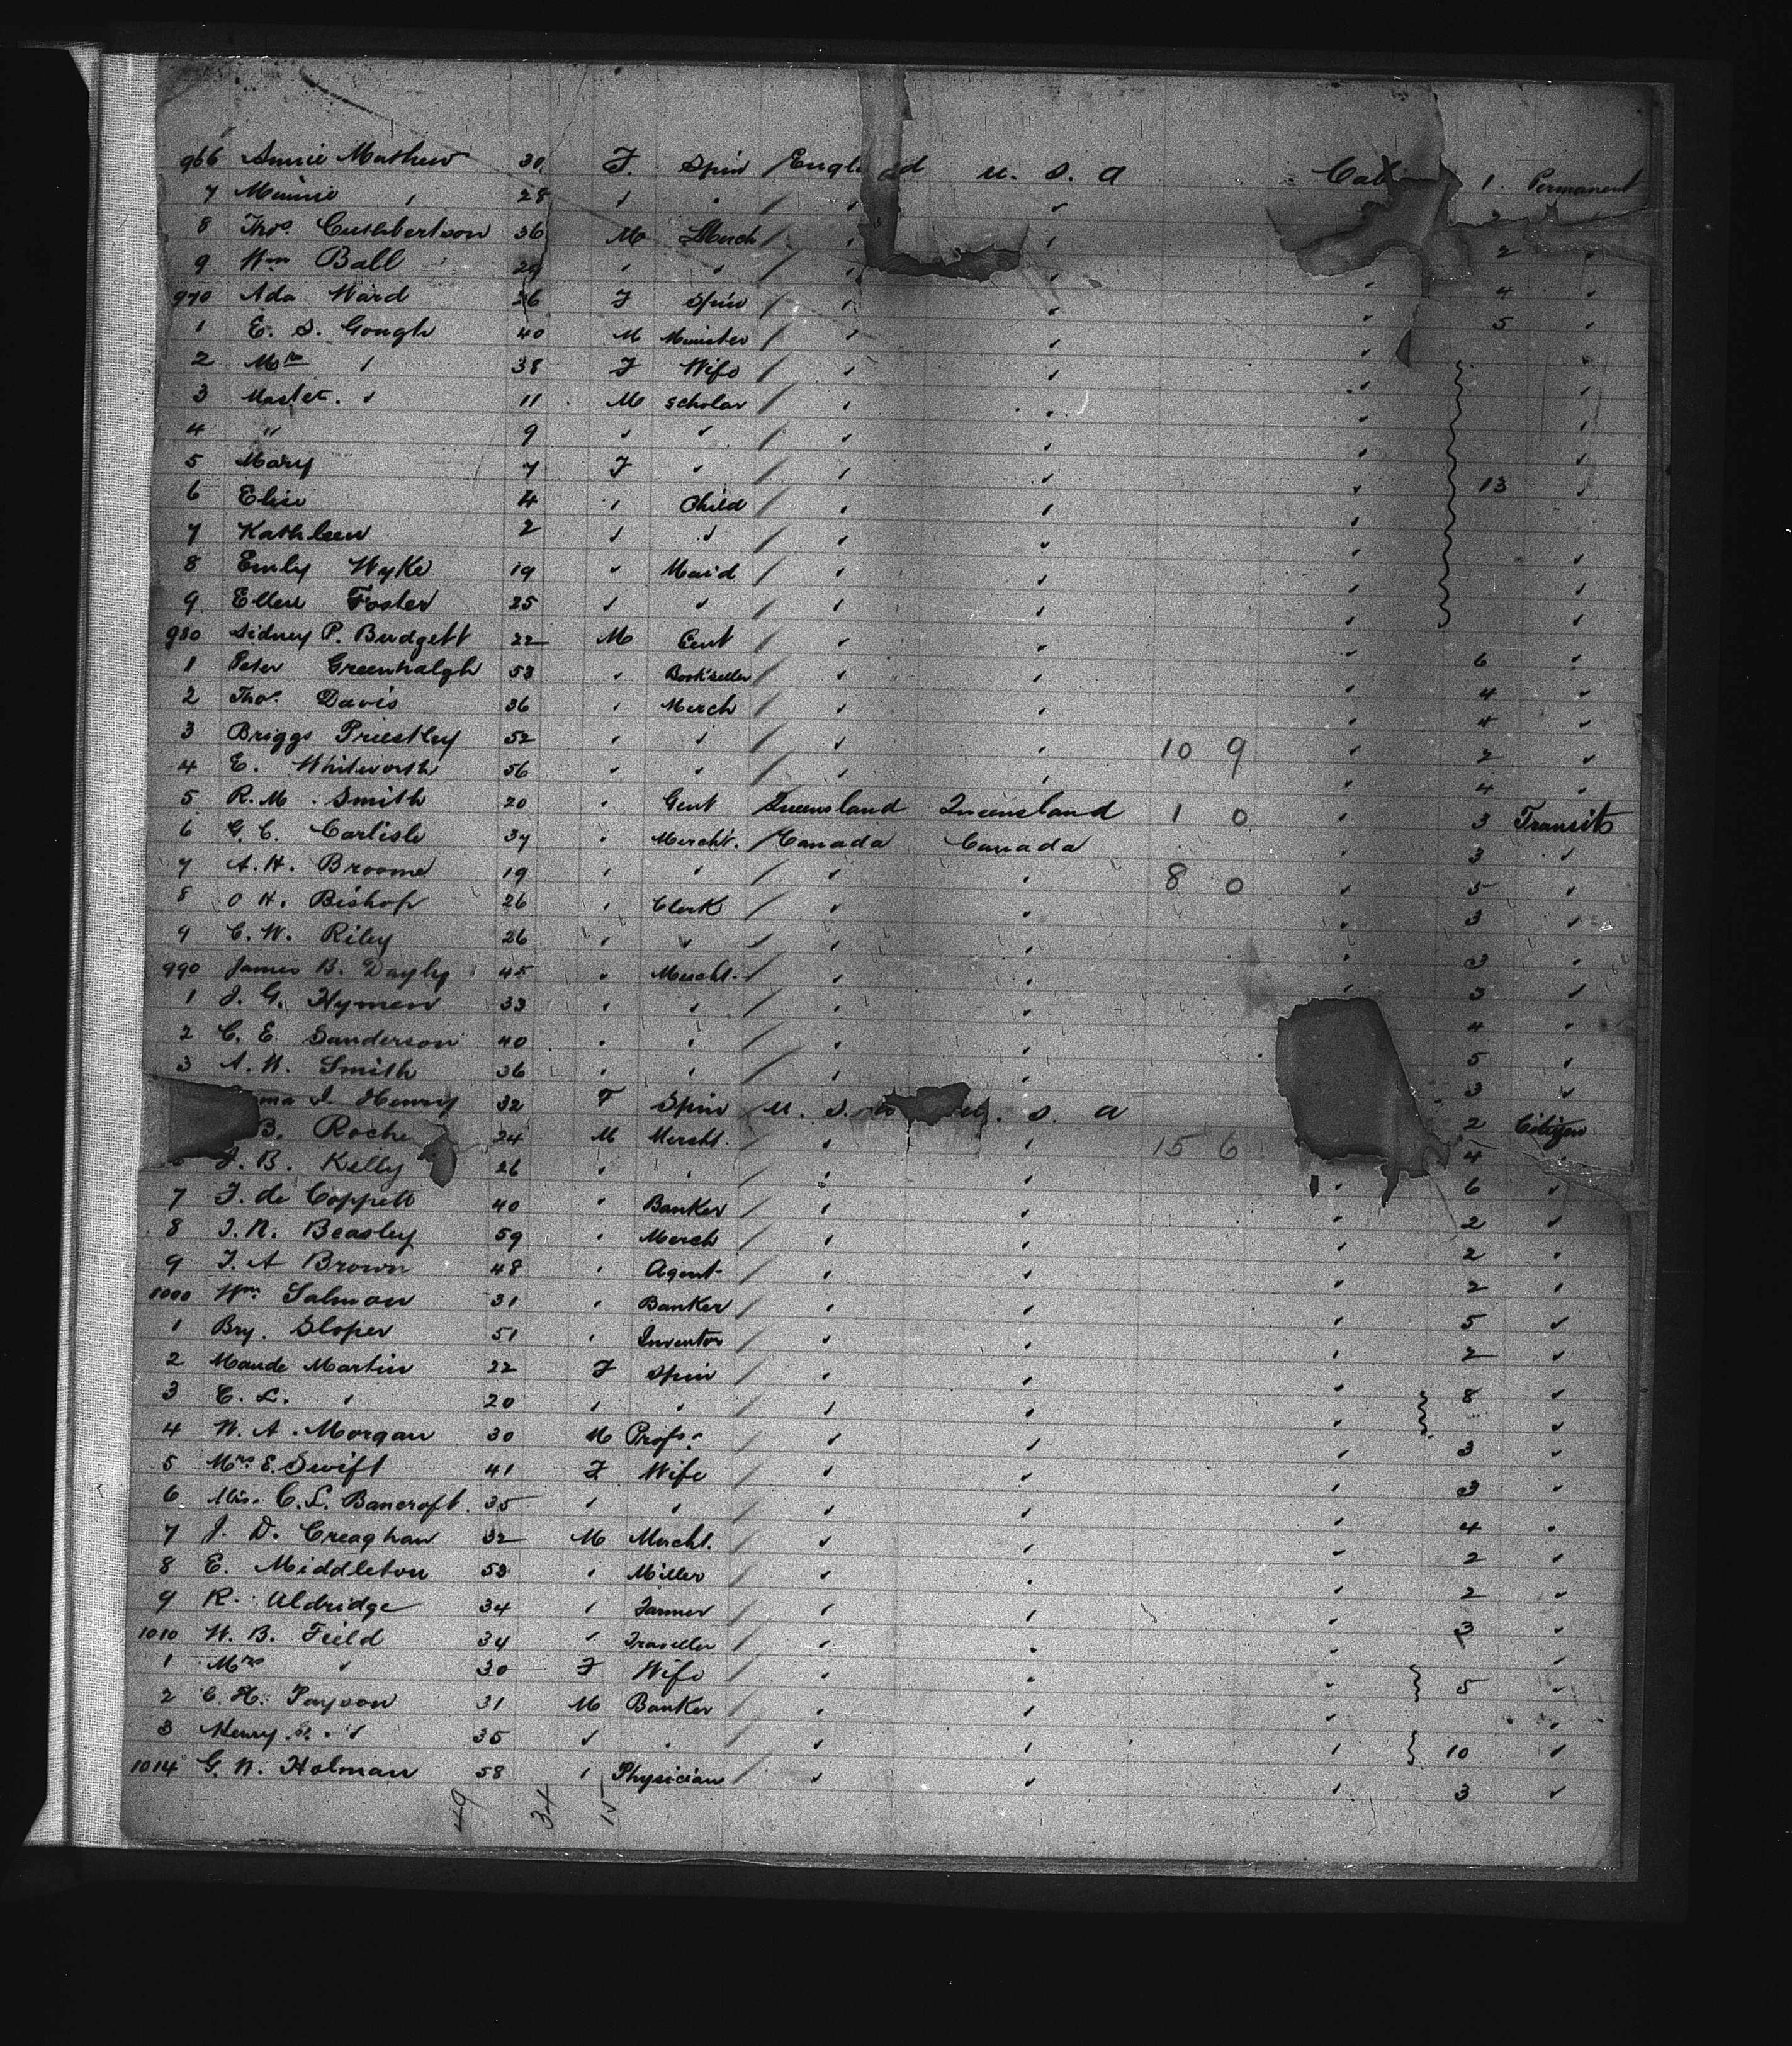 966 Annie Mathew 30 F. Spin England U. S. A Cabin 1 Permanent
7 Minnie " 28 " " " " 2 "
8 Thos. Cuthbertson 36 M Merch " " 2 "
9 Wm Ball 29 " " " " " 4 "
970 Ada Ward 26 F Spin " " " 5 "
1 E. S. Gough 40 M Minister " " " "
2 Mrs " 38 F Wife " " " "
3 Master. " 11 M Scholar " " " "
4 " 9 " " " " " "
5 Mary 7 F " " " " 13 "
6 Elsie 4 " Child " " "
7 Kathleen 2 " " " " " "
8 Emily Wyke 19 " Maid " " " "
9 Ellen Foster 25 " " " " " "
980 Sidney P. Budgett 22 M Gent " " " 6 "
1 Peter Greenhalgh 53 " Bookseller " " " 4 "
2 Thos. Davis 36 " Merch " " " 4 "
3 Briggs Priestley 52 " " " " 10 9 " 2 "
4 E. Whitworth 56 " " " " " 4 "
5 R. M. Smith 20 " Gent Queensland Queensland 1 0 " 3 Transit
6 G. C. Carlisle 37 " Mercht. Canada Canada " 3 "
7 A. H. Broome 19 " " " " 8 0 " 5 "
8 O H. Bishop 26 " Clerk " " " 3 "
9 C. W. Riley 26 " " " " " 3 "
990 James B. Dayly 45 " Mercht. " " " 3 "
1 J. G. Hymen 33 " " " " 4 "
2 C. E. Sanderson 40 " " " " 5 "
3 A. W. Smith 36 " " " " 3 "
ma I. Henry 32 F Spin U. S. A U. S. A 2 Citizen
B. Roche 24 M Mercht. " " 15 6 4 "
J. B. Kelly 26 " " " " " 6 "
7 F. de Coppett 40 " Banker " " " 2 "
8 J. N. Beasley 59 " Merch " " " 2 "
9 J. A Brown 48 " Agent " " " 2 "
1000 Wm. Salmon 31 " Banker " " " 5 "
1 Bry. Sloper 51 " Inventor " " " 2 "
2 Maude Martin 22 F Spin " " " 8 "
3 C. L. " 20 " " " " " "
4 W. A. Morgan 30 M Profr. " " " 3 "
5 Mrs E. Swift 41 F Wife " " " 3 "
6 Mis. C. L. Bancroft. 35 " " " " " 4 "
7 J. D. Creaghan 32 M Mercht. " " " 2 "
8 E. Middleton 53 " Miller " " " 2 "
9 R. Aldridge 34 " Farmer " " " 3 "
1010 W. B. Field 34 " Traveller " " " "
1 Mrs " 30 F Wife " " " 5 "
2 C. H. 31 M Banker " " " "
3 Henry " 35 " " " " " 10 "
1014 G. W. Holman 58 " Physician " " " 3 "
49 34 15